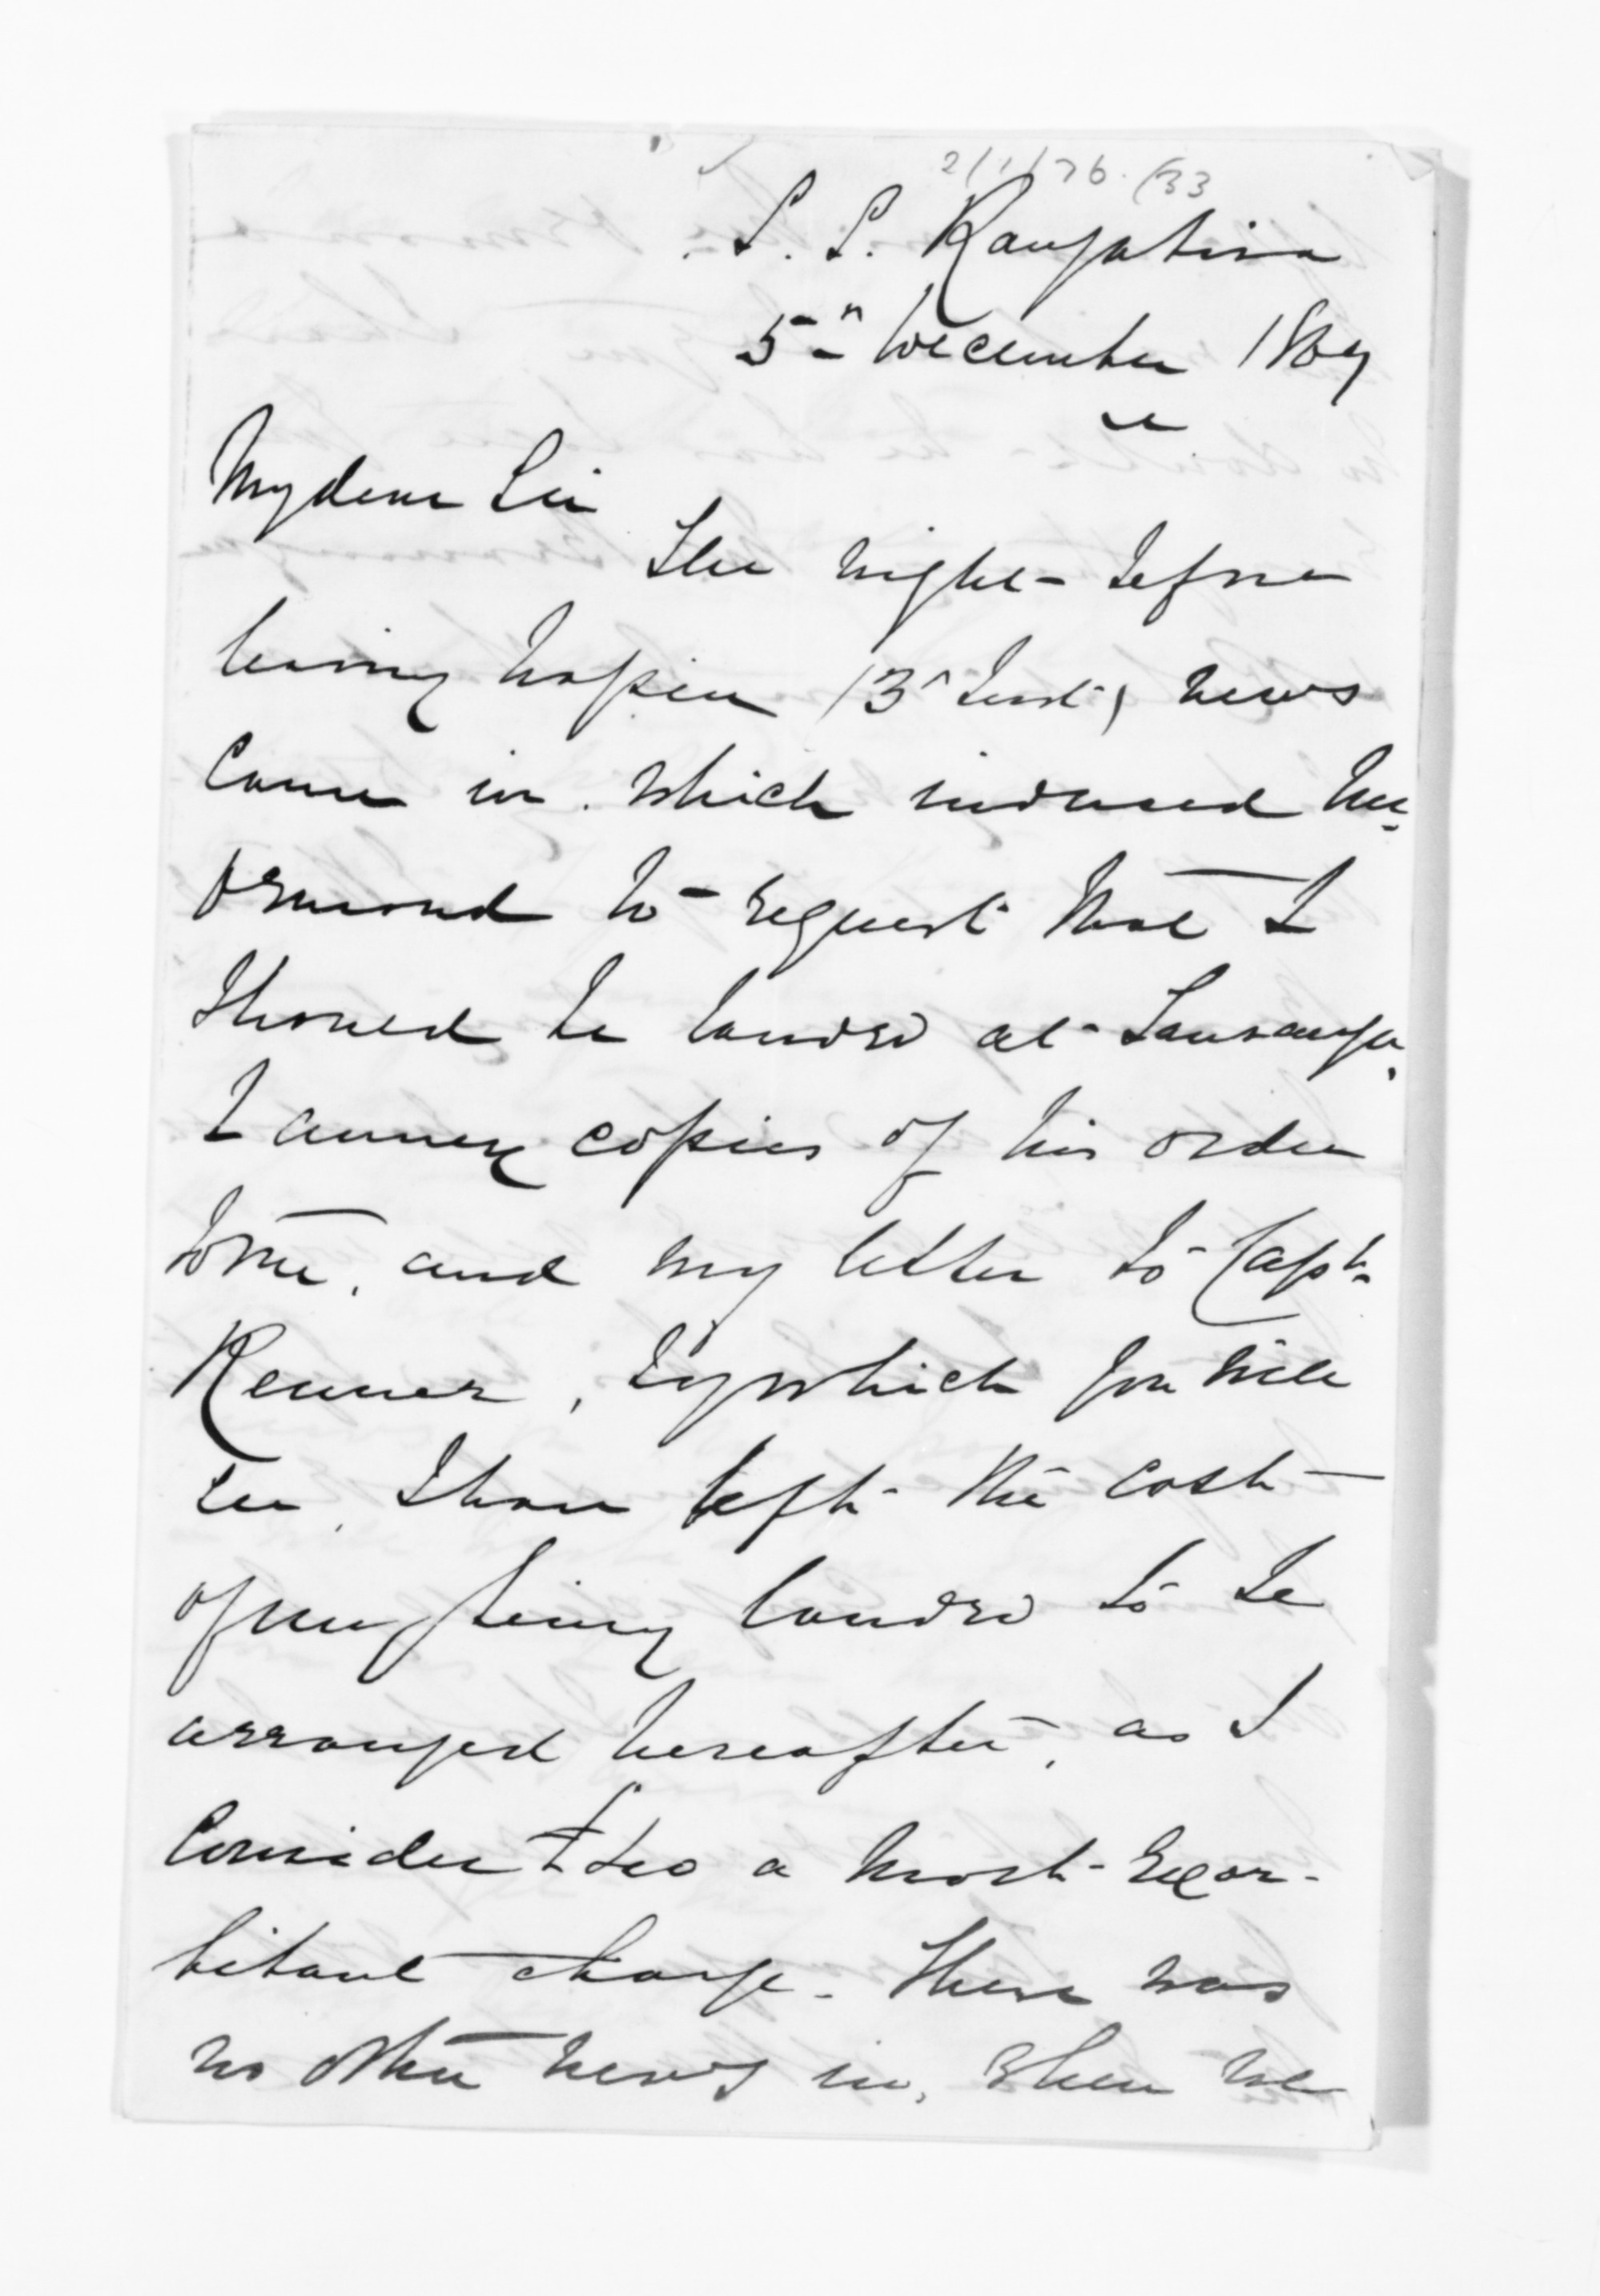 S. S. Rangatira
5th December 1869
My dear Sir
The night before
leaving Napier (3d Inst) news
came in which induced Mr
Ormond to request that I
should be landed at Tauranga.
I annex copies of his order
to me, and my letter to Capt.
Renner, by which you will
see, I have left the cost
of my being landed to be
arranged hereafter, as I
consider £ 0 a most exor-
bitant charge. There was
no other news in, when we